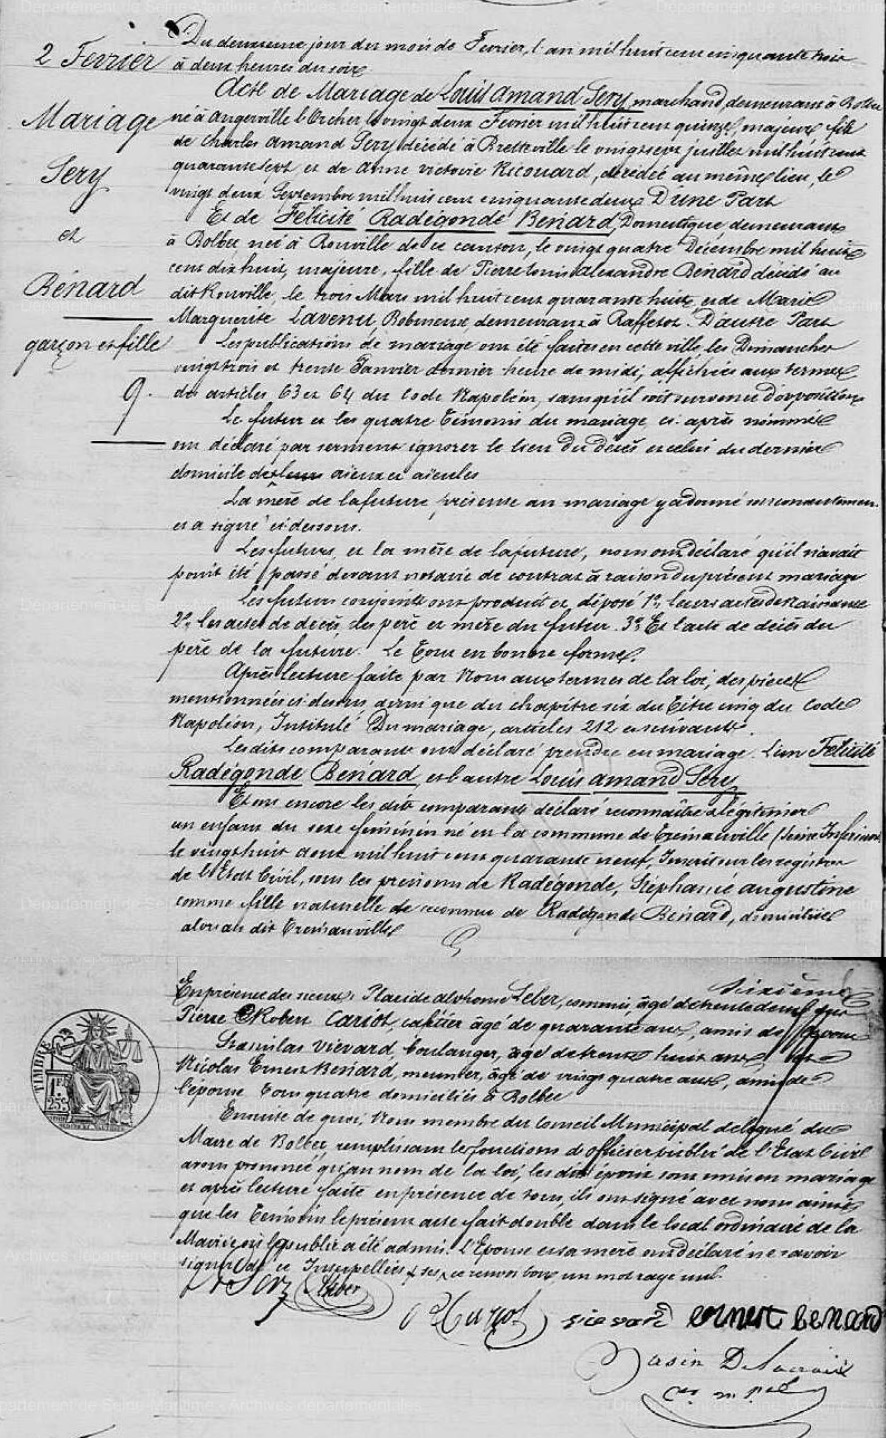 2 Fevrier
Mariage
Sery
et
Bénard
garçon et fille
9.
Du deuxieme jour du mois de Fevrier, l'an mil huit cent cinquante trois
à deux heures du soir
Acte de Mariage de Louis Amand Sery, marchand, demeurant à Bolbec
né à Angerville l'Orcher le vingt deux Fevrier mil huit cent quinze, majeur, fils
de Charles Amand Sery décédé à Bretteville le vingt sept juillet mil huit cent
quarante sept et de Anne Victoire Ricouard, décédée au même lieu, le
vingt deux Septembre mil huit cent cinquante deux D'une Part
Et de Félicité Radégonde Bénard, Domestique, demeurant
à Bolbec née à Rouville de ce canton, le vingt quatre Décembre mil huit
cent dix huit, majeure, fille de Pierre Louis Alexandre Bénard décédé au
dit Rouville, le trois Mars mil huit cent quarante huit, et de Marie
Marguerite Lavenu, Bobineuse, demeurant à Raffetot. D'autre Part
Les publications de mariage ont été faites en cette ville, les Dimanches
vingt trois et trente Janvier dernier heure de midi, affichées aux termes
des articles 63 et 64 du Code Napoléon, sans qu'il soit survenu d'opposition
Le futur et les quatre témoins du mariage, ci-après nommés
ont déclaré par serment ignorer le lieu du décès et celui du dernier
domicile de leurs aïeux et aïeules
La mère de la future, présente au mariage y a donné son consentement
et a signé ci dessous.
Les futurs, et la mère de la future, nous ont déclaré qu'il n'avait
point été passé devant notaire de contrat à raison du présent mariage
Les futurs conjoints ont produit et déposé 1°, leurs actes de naissance
2°, les actes de décès, des père et mère du futur. 3° Et l'acte de décès du
père de la future. Le Tout en bonne forme.
Après lecture faite par Nous aux termes de la loi, des pièces
mentionnées ci dessus, ainsi que du chapitre six du Titre cinq du Code
Napoléon, Intitulé Du mariage, articles 212 et suivants.
Les dits comparants ont déclaré prendre en mariage. L'un Félicité
Radégonde Bénard, et l'autre Louis Amand Sery
Et ont encore les dits comparants déclaré reconnaître et légitimer
un enfant du sexe féminin né en la commune de (Seine Inférieure)
le vingt huit aout mil huit cent quarante neuf, Inscrit sur les registres
de l'Etat Civil, sous les prénoms de Radégonde, Stéphanie Augustine
comme fille naturelle de reconnue de Radégonde Bénard, domiciliée
alors au dit
sixième
En présence des sieurs Placide Alphonse Leber, commis, âgé de trente deux ans
Pierre Robert Cariot, cafetier âgé de quarante ans, amis de l'époux
Stanislas Viévard, boulanger, âgé de trente huit ans
Nicolas Ernest Bénard, meunier, âgé de vingt quatre ans, amis de
l'épouse Tous quatre domiciliés à Bolbec
Ensuite de quoi, Nous membre du Conseil Municipal délégué du
Maire de Bolbec, remplissant les fonctions d'officier public de l'Etat Civil
avons prononcé qu'au nom de la loi, les dits époux sont unis en mariage
et après lecture faite en présence de tous, ils ont signé avec nous ainsi
que les Témoins le présent acte fait double dans le local ordinaire de la
Mairie, où le public a été admis. L'Épouse et sa mère ont déclaré ne savoir
signer de ce Interpellées un mot rayé nul.
TIMBRE
1F.
25c.
Sery Leber
viévard ernest Benard